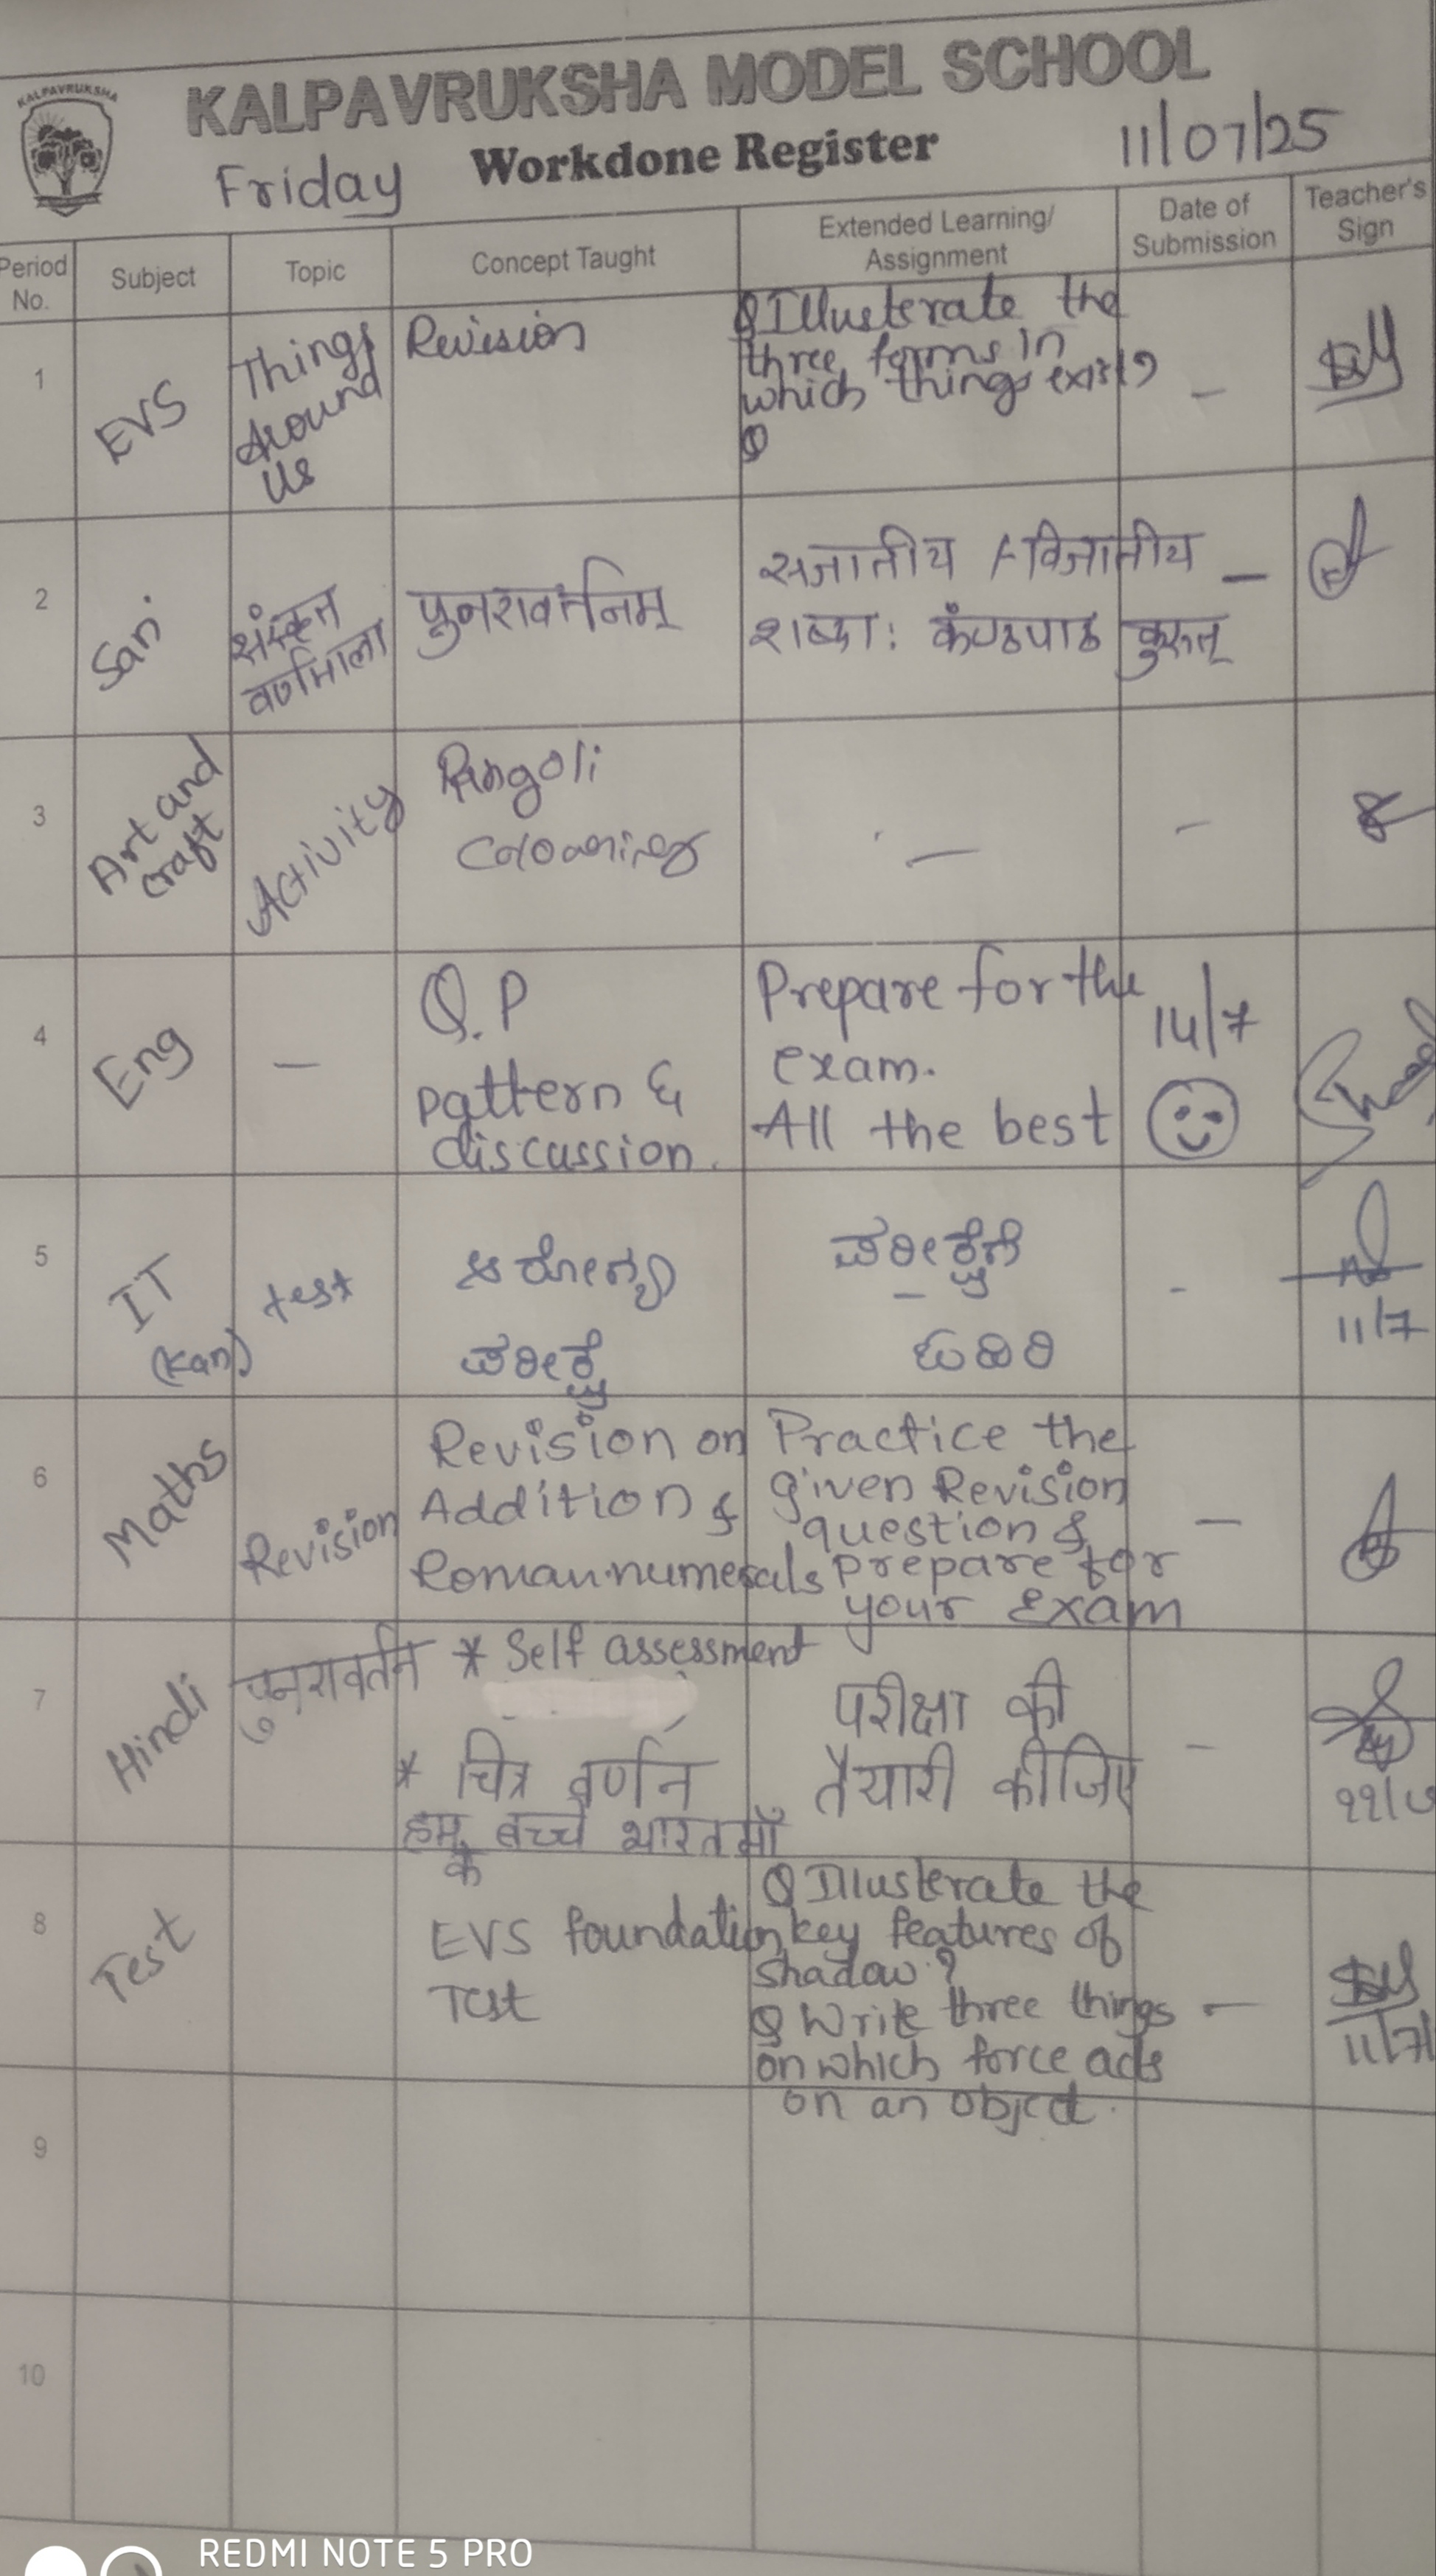 KALPAVRUKSHA
KALPAVRUKSHA MODEL SCHOOL
Friday Workdone Register 11/07/25
Period No. Subject Topic Concept Taught Extended Learning/ Assignment Date of Submission Teacher's Sign
1 EVS
Things
Around
Us
Revision
Q Illusterate the
three forms in
which things exist?
Q
–
2 San.
संस्कृत
वर्णमाला
पुनरावर्तनम्
सजातीय / विजातीय –
शब्दाः कंण्ठपाठ कुरुत्
3 Art and
craft
Activity
Rangoli
Colouring
–
–
4 Eng
–
Q.P
pattern &
discussion.
Prepare for the
exam.
All the best
14/7
5 IT
(Kan)
test
ಆರೋಗ್ಯ
ಪರೀಕ್ಷೆ
ಪರೀಕ್ಷೆಗೆ
ಓದಿರಿ
-
11/7
6 Maths
Revision
Revision on
Addition &
Roman numerals
Practice the
given Revision
question &
prepare for
your Exam
–
7 Hindi
पुनरावर्तन
* Self assessment
* चित्र वर्णन
हम बच्चे भारत माँ
के
परीक्षा की
तैयारी कीजिए
–
8 Test
EVS foundation
Test
Q Illusterate the
key features of
shadow?
Q Write three things
on which force acts
on an object.
–
11/7
9
10
REDMI NOTE 5 PRO